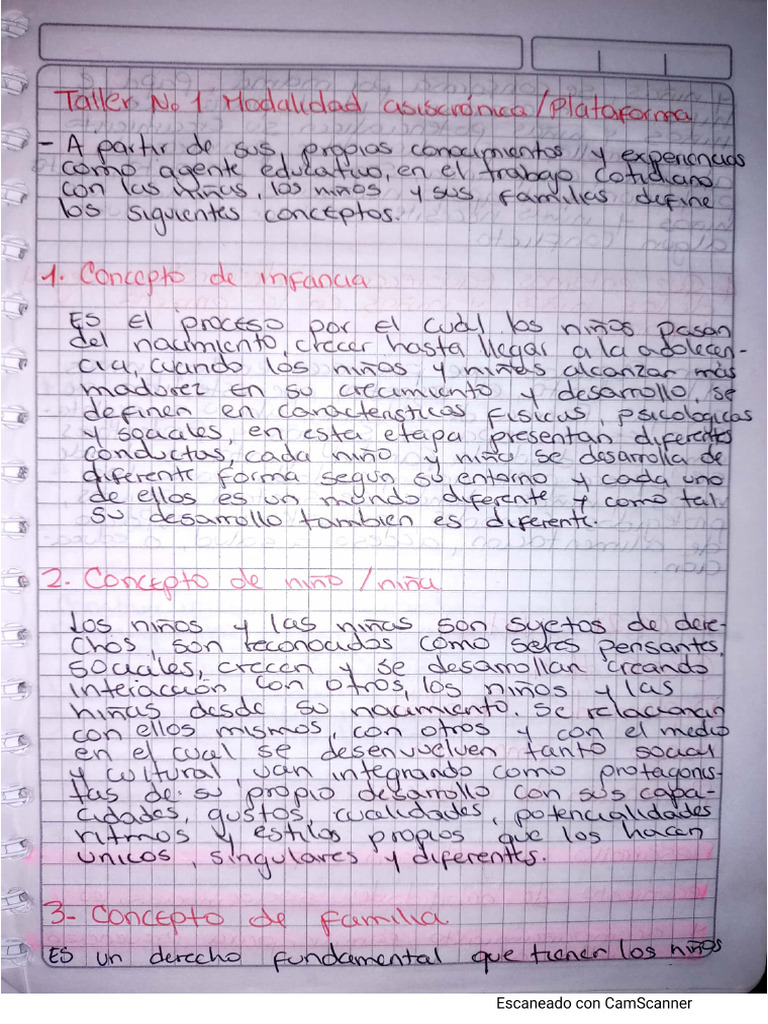 Taller No 1 Modalidad asiscrónica/Plataforma
- A partir de sus propios conocimientos y experiencias
como agente educativo, en el trabajo cotidiano
con las niñas, los niños y sus familias define
los siguientes conceptos.
1. Concepto de infancia
Es el proceso por el cual los niños pasan
del nacimiento, crecer hasta llegar a la adolecen-
cia, cuando los niños y niñas alcanzar más
madurez en su crecimiento y desarrollo, se
definen en caracteristicas fisicas, psicologicas
y sociales, en esta etapa presentan diferentes
conductas, cada niño y niña se desarrolla de
diferente forma según su entorno y cada uno
de ellos es un mundo diferente y como tal
su desarrollo tambien es diferente.
2. Concepto de niño/niña
Los niños y las niñas son sujetos de dere-
chos, son reconocidos como seres pensantes,
sociales, crecen y se desarrollan creando
interacción con otros, los niños y las
niñas desde su nacimiento. Se relacionan
con ellos mismos, con otros y con el medio
en el cual se desenvuelven tanto social
y cultural, van integrando como protagonis-
tas de su propio desarrollo con sus capa-
cidades, gustos, cualidades, potencialidades
ritmos y estilos propios que los hacen
unicos, singulares y diferentes.
3- Concepto de familia.
Es un derecho fundamental que tienen los niños
Escaneado con CamScanner